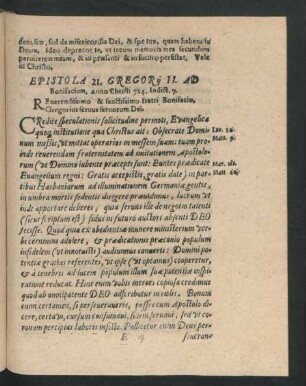 dens sim, sed de misericordia Dei, & spe tua, quam habeas in
Deum. Ideo deprecor te, ut tecum memoria mea secundum
permaneat meam, & in præsenti & in futuro persistat, Vale
in Christo.
EPISTOLA 21. GREGORij II. AD
Bonifacium, Anno Christi 724. Indict. 7.
REverendissimo & sanctissimo fratri Bonifacio,
Gregorius servus servorum Dei.
CRedite speculationis solicitudine permoti, Evangelica
quoq; institutione qua Christus ait: Obsecrate Domi-
num messis, ut mittat operarios in messem suam: tuam pro-
inde reverendam fraternitatem ad imitationem Apostolo-
rum
Evangelium regni: Gratis accepistis, gratis date) in par-
tibus Hesbaniarum ad illuminationem Germaniæ gentis,
in umbra mortis sedentis dirigere præavidimus, lucrum ut
inde apportare deberes, quia servus ille de negotio talenti
(sicut scriptum est) fidus in futuro auctori adjecit DEO
fecisse. Quod quia ex obedientia munere ministerium ver-
bi cernimus adolere, & prædicationis præconio populum
infidelem (ut innotuisti) audivimus converti: Domini po-
tentia gratias referentes, ut ipse (ut optamus) cooperetur,
& à tenebris ad lucem populum illum sua potentia inspi-
ratione reducat. Hinc enim vobis merces copiosa credimus
quod ab omnipotente DEO adscribatur in cœlis. Bonum
enim certamen, si perseveraveris, posse cum Apostolo di-
cere, certavi, cursum consumavi, fidem servavi, sed ut co-
ronam percipias laboris insiste. Pollicetur enim Deus per-
E iij
severan-
Luc. 10.
Matt. 9.
Mar. ult.
Matt. 10.